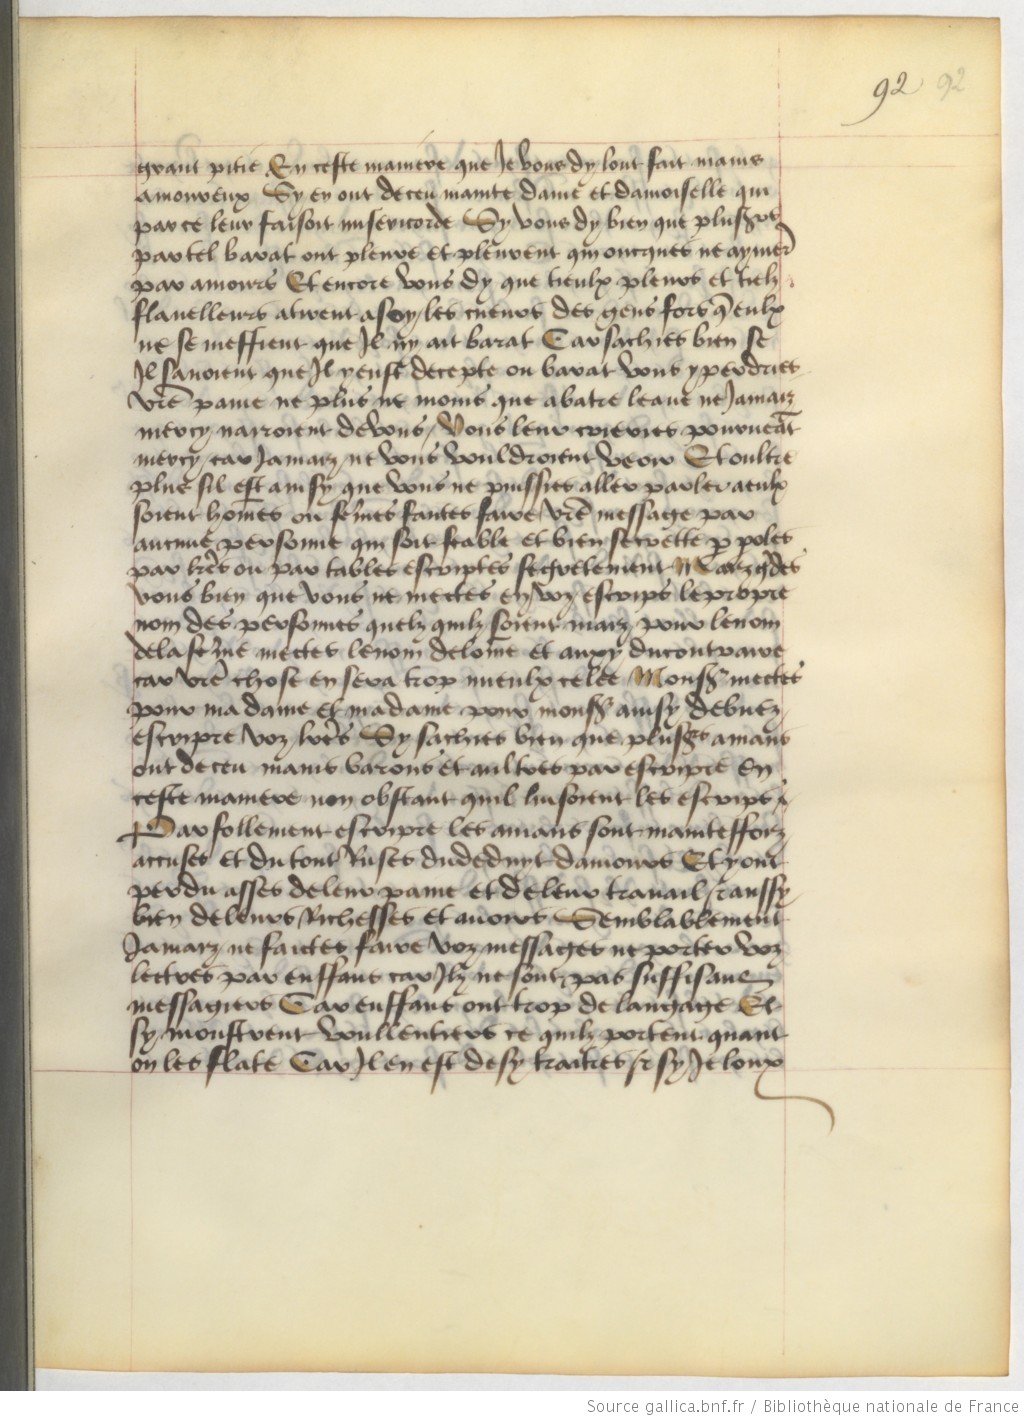 92 92
grant pitie En ceste maniere que Je vous dy lont fait mains
amoureux Sy en ont deceu mainte dame et damoiselle qui
par ce leur faisoit misericorde Sy vous dy bien que plusrs
par tel barat ont pleure et pleurent qui oncques ne aymer
par amours Et encore vous dy que tieulx pleurs et tielz
flauelleurs atirent a soy les cueurs des gens fors q eulx
ne se meffient que Il ny ait barat Car sachies bien se
Il sauoient que Il y eust decepte ou barat vous y perdries
vre paine ne plus ne moins que abatre leaue ne Jamaiz
mercy nauroient de vous / Vous leur crieries pour neat
mercy car Jamaiz ne vous vouldroient veoir Et oultre
plus sil est ainsy que vous ne puissies aller parler a eulx
soient homes ou femes faictes faire vre message par
aucune personne qui soit stable et bien secrette p poles
par lres ou par tables escriptes secretement Maiz gdes
vous bien que vous ne mectes en voz escrips le propre
nom des personnes quelz quilz soient maiz pour le nom
de la feme mectes le nom de lome et aussy du contraire
car vre chose en sera trop mieulx celee Monsr mectes
pour ma dame et ma dame pour monsr ainsy debuez
escripre voz lres Sy sachies bien que plusrs amans
ont deceu mains barons et aultres par escripre En
ceste maniere non obstant quil luisoient les escrips
Par follement escripre les amans sont maintesfoiz
accuses et du tout Ruses du deduyt damours Et y ont
perdu asses de leur paine et de leur trauail / aussy
bien de leurs Richesses et auoirs Semblablement
Jamaiz ne faictes faire voz messages ne porter voz
lectres par enffans car Ilz ne sont pas suffisans
messagiers Car enffans ont trop de langage Et
sy monstrent voullentiers ce quilz portent quant
on les flate Car Il en est de sy traitres / se sy Je loux
Source gallica.bnf.fr / Bibliothèque nationale de France